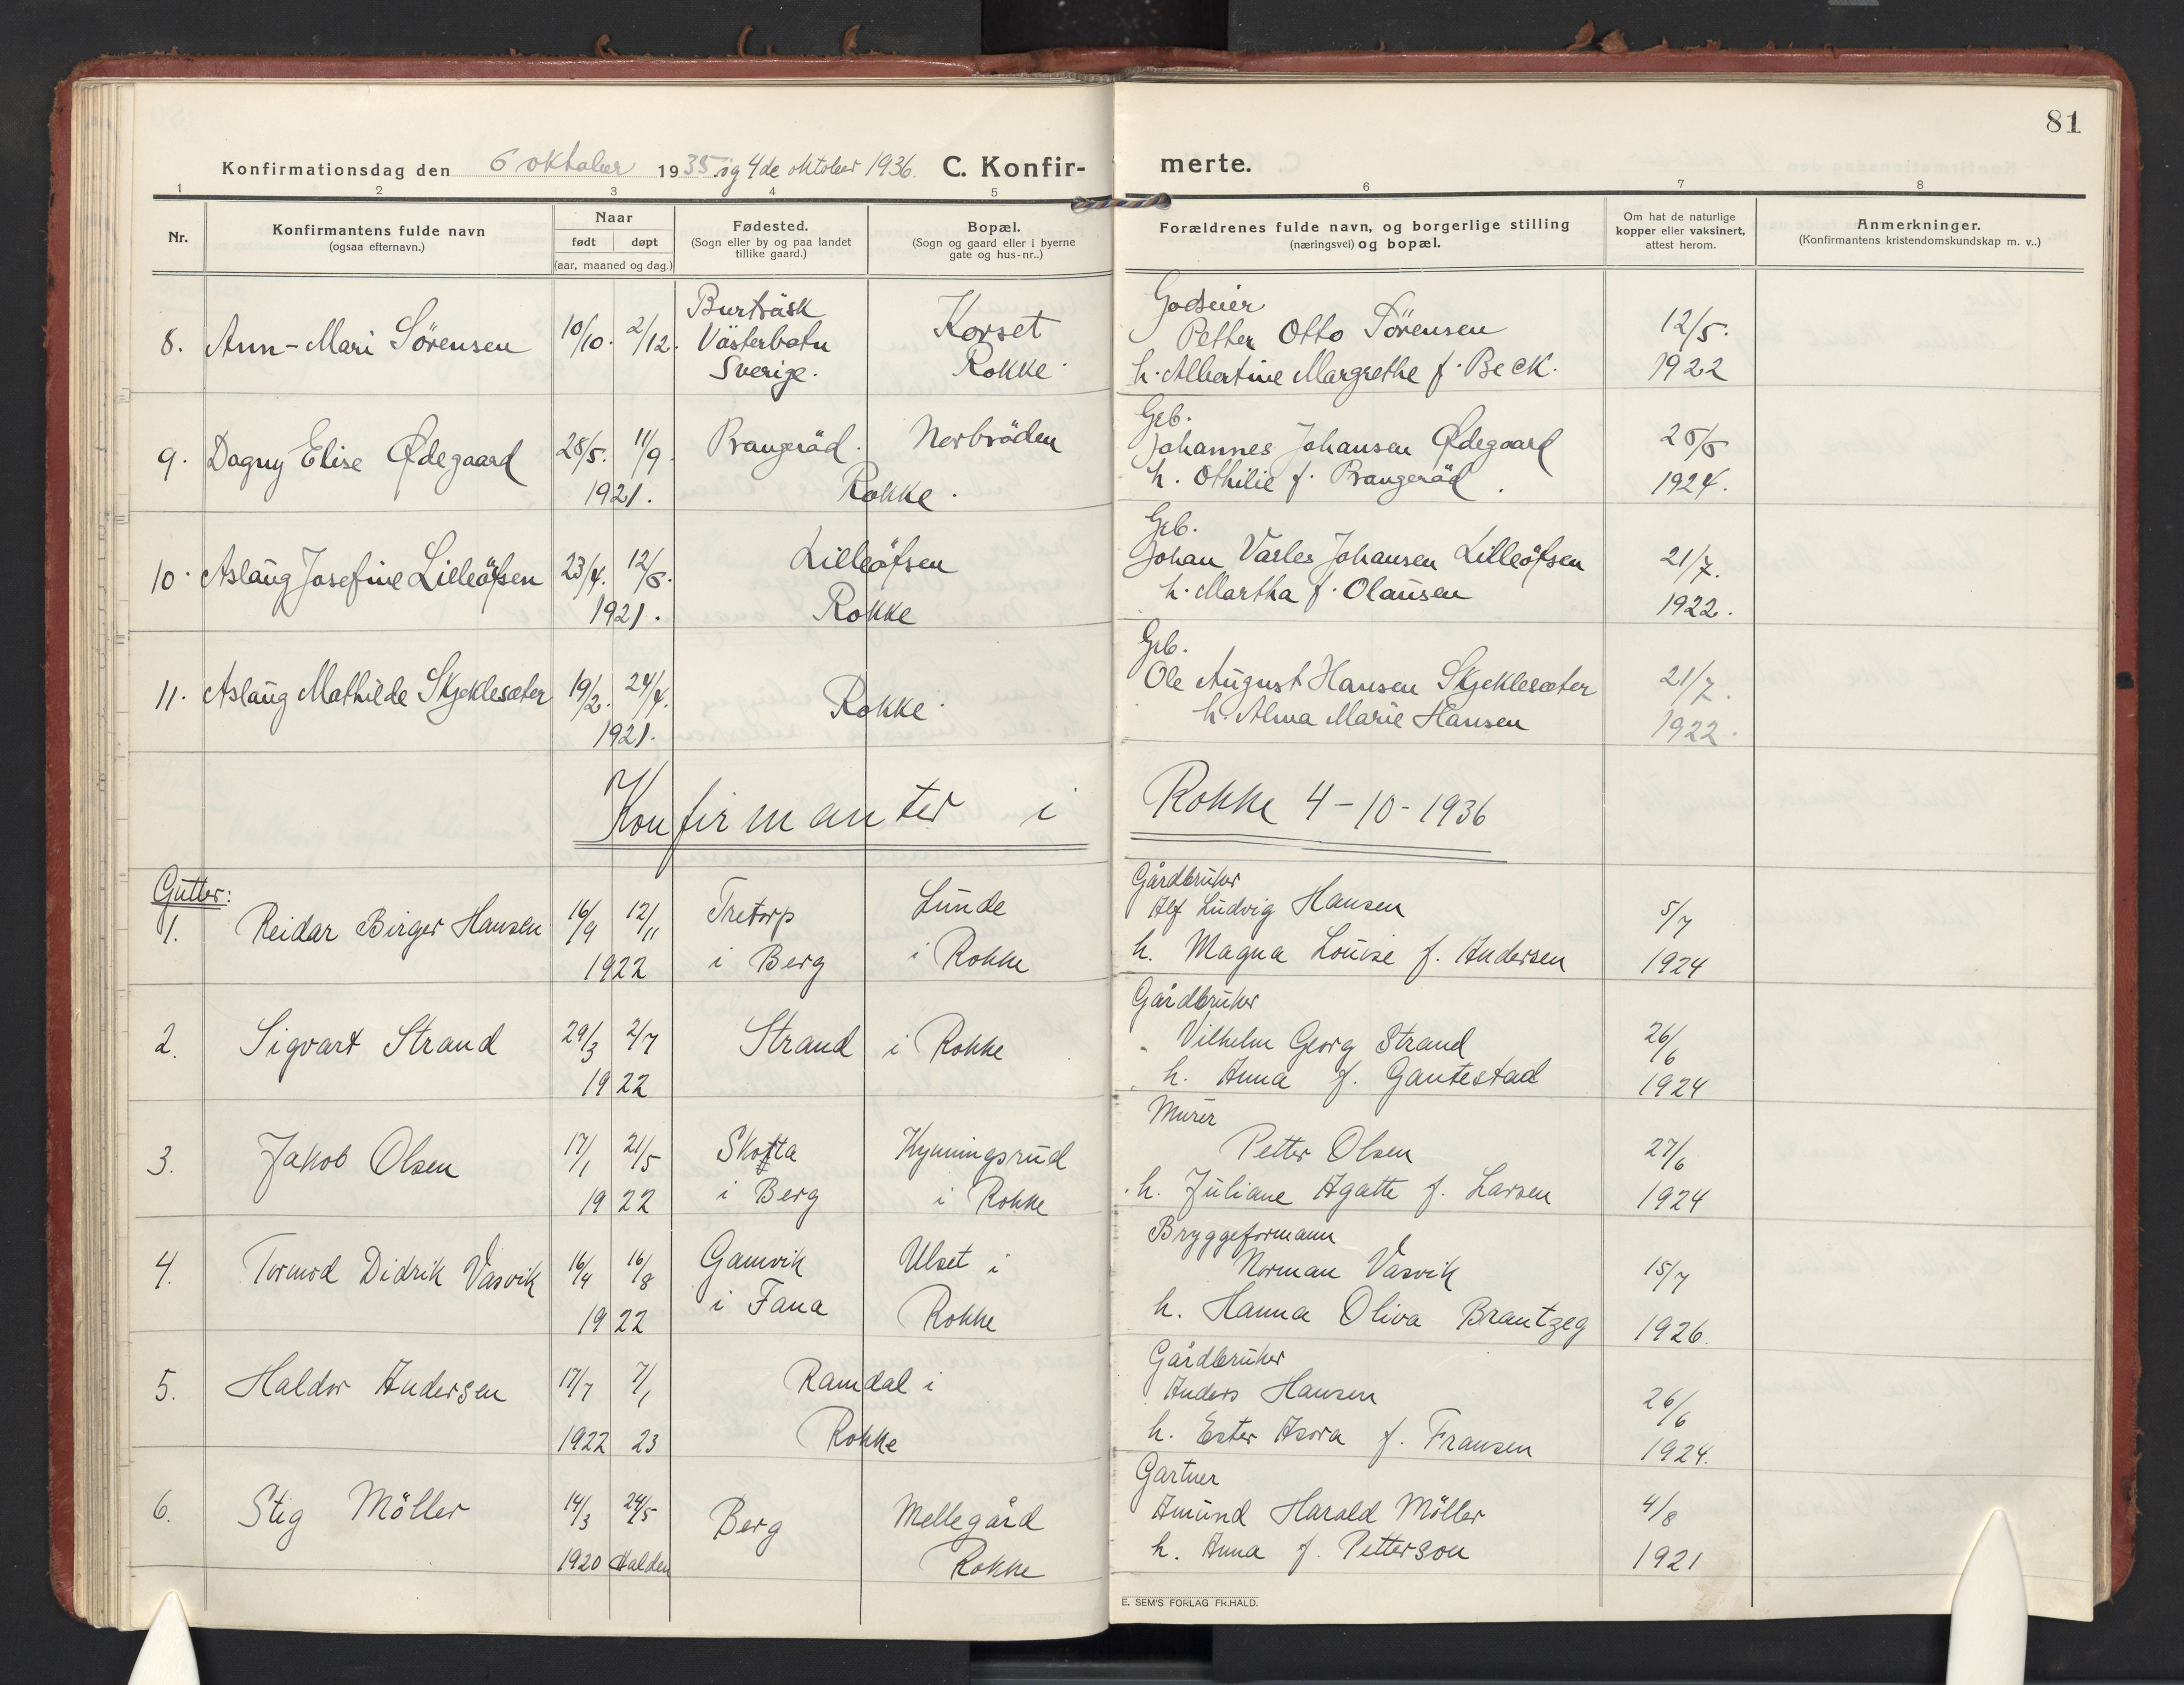 81
Konfirmationsdag den 6 oktober 1935 og 4de oktober 1936. C. Konfir-merte.
1 2 3 4 5 6 7 8
Nr.
Konfirmantens fulde navn
(ogsaa efternavn.)
Naar
født døpt
(aar, maaned og dag.)
Fødested.
(Sogn eller by og paa landet
tillike gaard.)
Bopæl.
(Sogn og gaard eller i byerne
gate og hus-nr..)
Forældrenes fulde navn, og borgerlige stilling
(næringsvei) og bopæl.
Om hat de naturlige
kopper eller vaksinert,
attest herom.
Anmerkninger.
(Konfirmantens kristendomskundskap m. v..)
8. Ann-Mari Sörensen 10/10. 2/12.
Burträsk
Västerbotn
Sverige.
Korset
Rokke.
Godseier
Petter Otto Sörensen
h. Albertine Margrethe f. Beck.
12/5.
1922
9. Dagny Elise Ødegaard 28/5. 11/9.
1921.
Prangeröd. Norbröden
Rokke.
Grb.
Johannes Johansen Ødegaard
h. Othilie f. Prangeröd.
1924.
10. Aslaug Josefine Lilleöfsen 23/4. 12/6.
1921.
Lilleöfsen
Rokke
Grb.
Johan Johansen Lilleöfsen
h. Martha f. Olausen
21/7.
1922.
11. Aslaug Mathilde Skjeklesæter 19/2. 24/4.
1921.
Rokke.
Grb.
Ole August Hansen Skjeklesæter
h. Alma Marie Hansen
21/7.
1922.
Konfirmanter i Rokke 4-10-1936
Gutter:
1. Reidar Birger Hansen 16/9 12/11
1922
Tretorp
i Berg
Lunde
i Rokke
Gårdbruker
Alf Ludvig Hansen
h. Magna Louise f. Andersen
5/7
1924
2. Sigvart Strand 29/3 2/7
1922
Strand i Rokke
Gårdbruker
Vilhelm Georg Strand
h. Anna f. Gautestad
26/6
1924
3. Jakob Olsen 17/1 21/5
1922
Skofta
i Berg
Kynningsrud
i Rokke
Murer
Petter Olsen
h. Juliane Agatte f. Larsen
27/6
1924
4. Tormod Didrik Vasvik 16/4 16/8
1922
Gamvik
i Fana
Ulset i
Rokke
Bryggeformann
Norman Vasvik
h. Hanna Oliva Brantzeg
15/7
1926.
5. Haldor Andersen 17/7 7/1
1922 23
Ramdal i
Rokke
Gårdbruker
Anders Hansen
h. Ester Asora f. Fransen
26/6
1924.
6. Stig Möller 14/3 24/5
1920 Halden
Berg
Mellegård
Rokke
Gartner
Amund Harald Möller
h. Anna f. Petterson
4/8
1921
E. SEM'S FORLAG FR.HALD.